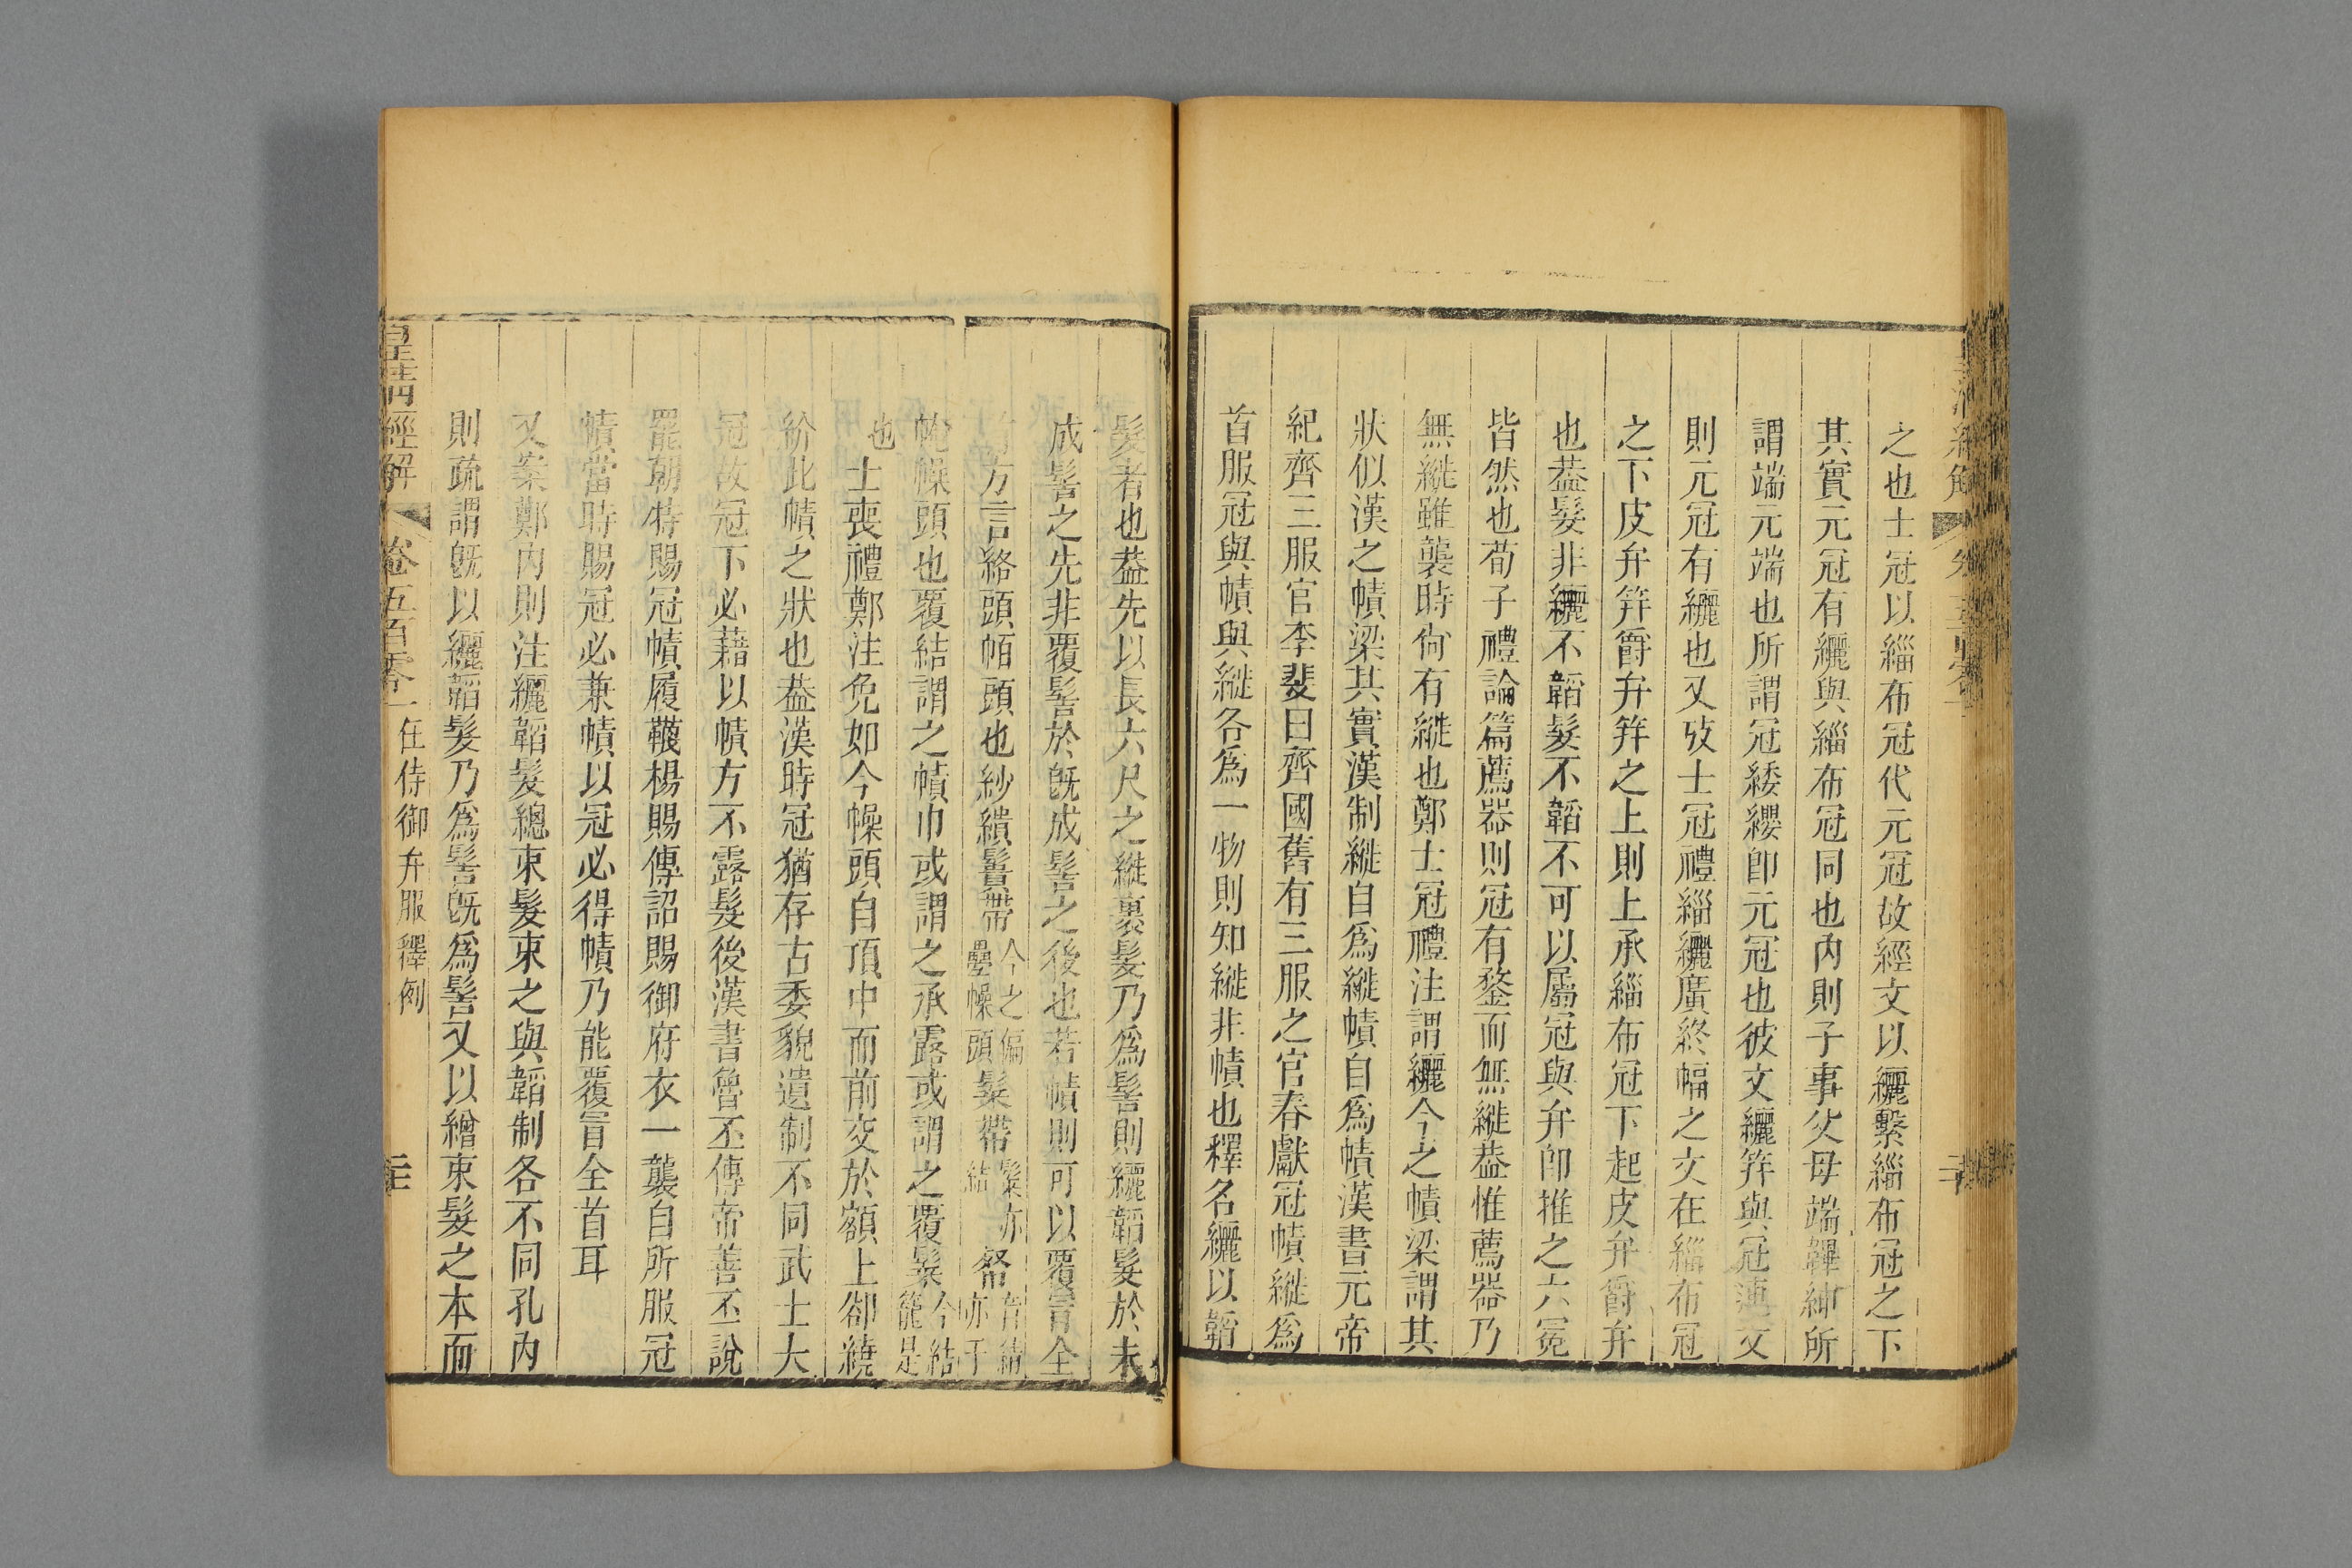 之也士冠以緇布冠代元冠故經文以纚繫緇布冠之下
其實元冠有纚與緇布冠同也內則子事父母端韠紳所
謂端元端也所謂冠緌纓卽元冠也彼文纚笄與冠連文
則元冠有纚也又攷士冠禮緇纚廣終幅之文在緇布冠
之下皮弁笄爵弁笄之上則上承緇布冠下起皮弁爵弁
也葢髮非纚不韜髮不韜不可以屬冠與弁卽推之六冕
皆然也荀子禮論篇薦器則冠有鍪而無縰葢惟薦器乃
無縰雖襲時尙有縰也鄭士冠禮注謂纚今之幘梁謂其
狀似漢之幘梁其實漢制縰自爲縰幘自爲幘漢書元帝
紀齊三服官李斐曰齊國舊有三服之官春獻冠幘縰爲
首服冠與幘與縰各爲一物則知縰非幘也釋名纚以韜
髮者也葢先以長六尺之縰裹髮乃爲髻則纚韜髮於未
成髻之先非覆髻於旣成髻之後也若幘則可以覆冒全
方言絡頭帞頭也紗繢鬠帶今之偏疊幧頭髤帶髤亦結
帕幧頭也覆結謂之幘巾或謂之承露或謂之覆髤今結籠是
也士喪禮鄭注免如今幧頭自頂中而前交於額上卻繞
紒此幘之狀也葢漢時冠猶存古委貌遺制不同武士大
冠故冠下必藉以幘方不露髮後漢書曾丕傳帝善丕說
罷朝特賜冠幘履韈楊賜傳詔賜御府衣一襲自所服冠
幘當時賜冠必兼幘以冠必得幘乃能覆冒全首耳
又案鄭內則注纚韜髮總束髮束之與韜制各不同孔內
則疏謂旣以纚韜髮乃爲髻旣爲髻又以繒束髮之本而
皇淸經解 卷五百零一 任侍御弁服釋例 三